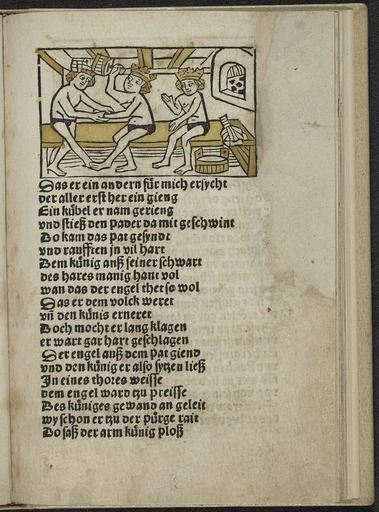 Das er ein andern für mich ersycht
der aller erst her ein gieng
Ein kübel er nam gerieng
vnd stieß den pader da mit geschwint
Do kam das pat gesyndt
vnd raufften jn vil hart
Dem künig auß seiner schwart
des hares manig hant vol
wan das der engel thet so wol
Das er dem volck weret
vñ den künis erneret
Doch mocht er lang klagen
er wart gar hart geschlagen
Der engel auß dem pat giend
vnd den künig er also sytzen ließ
Jn eines thores weisse
dem engel ward tzu preisse
Des küniges gewand an geleit
wy schon er tzu der pürge rait
Do saß der arm künig ploß